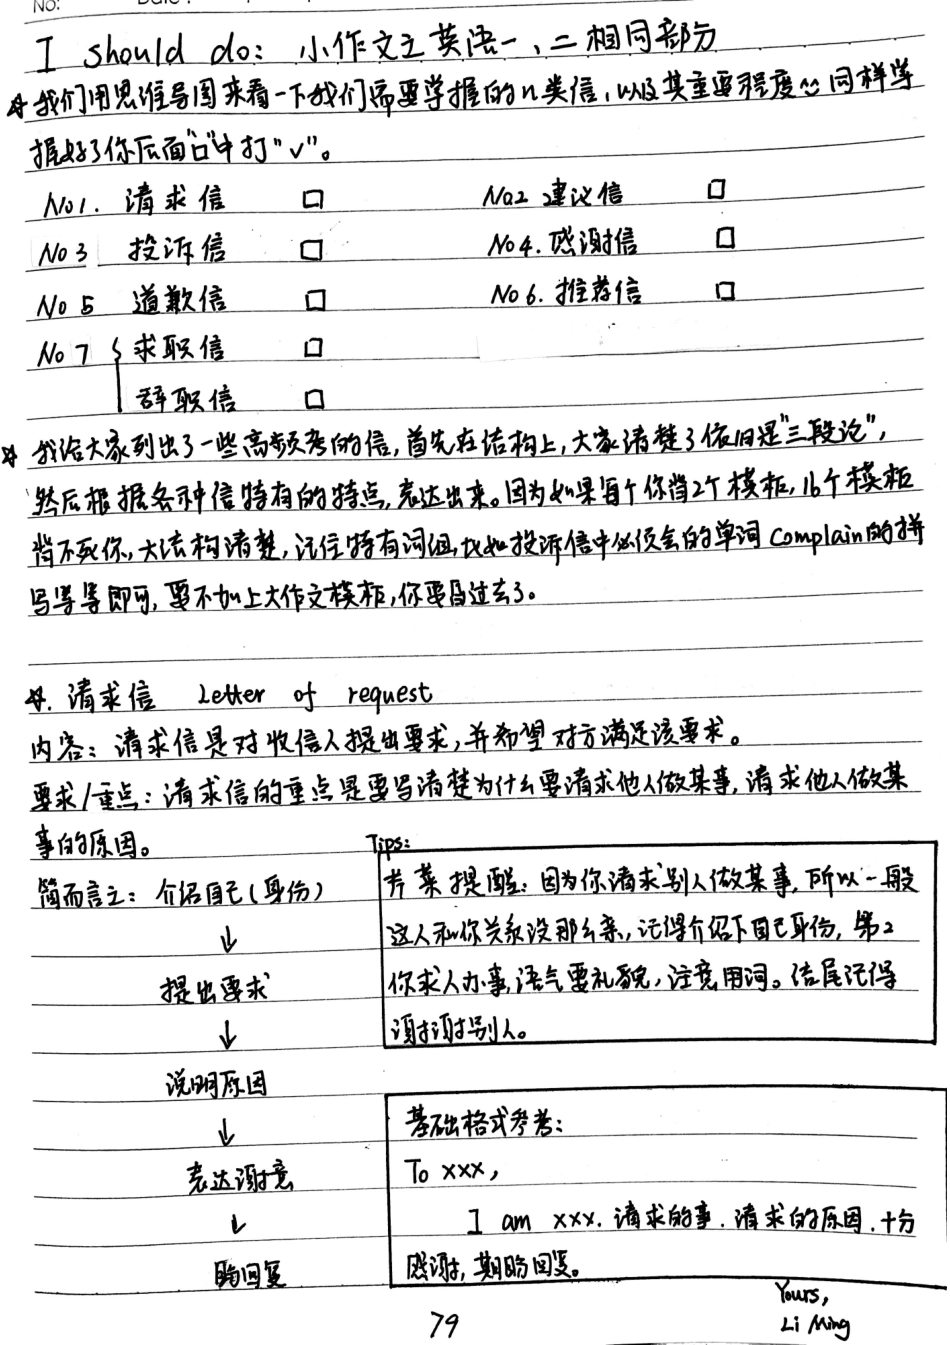 No:
I should do: 小作文之英语一、二相同部分
我们用思维导图来看一下我们需要掌握的n类信,以及其重要程度~同样掌
握好了你后面"□"中打"√"。
No1. 请求信 □ No2 建议信 □
No 3 投诉信 □ No 4. 感谢信 □
No 5 道歉信 □ No 6. 推荐信 □
No 7 { 求职信 □
辞职信 □
我给大家列出了一些高频考的信,首先在结构上,大家清楚了依旧是"三段论",
然后根据各种信特有的特点,表达出来。因为如果每个你背2个模板,16个模板
背不死你,大结构清楚,记住特有词组,比如投诉信中必须会的单词 Complain的拼
写等等即可,要不加上大作文模板,你要背过去了。
请求信 Letter of request
内容:请求信是对收信人提出要求,并希望对方满足该要求。
要求/重点:请求信的重点是要写清楚为什么要请求他人做某事,请求他人做某
事的原因。
Tips:
简而言之:介绍自己(身份)
↓
提出要求
↓
说明原因
↓
表达谢意
↓
盼回复
芹菜提醒:因为你请求别人做某事,所以一般
这人和你关系没那么亲,记得介绍下自己身份,第2
你求人办事,语气要礼貌,注意用词。结尾记得
谢谢别人。
基础格式参考:
To xxx,
I am xxx. 请求的事.请求的原因.十分
感谢,期盼回复。
Yours,
Li Ming
79